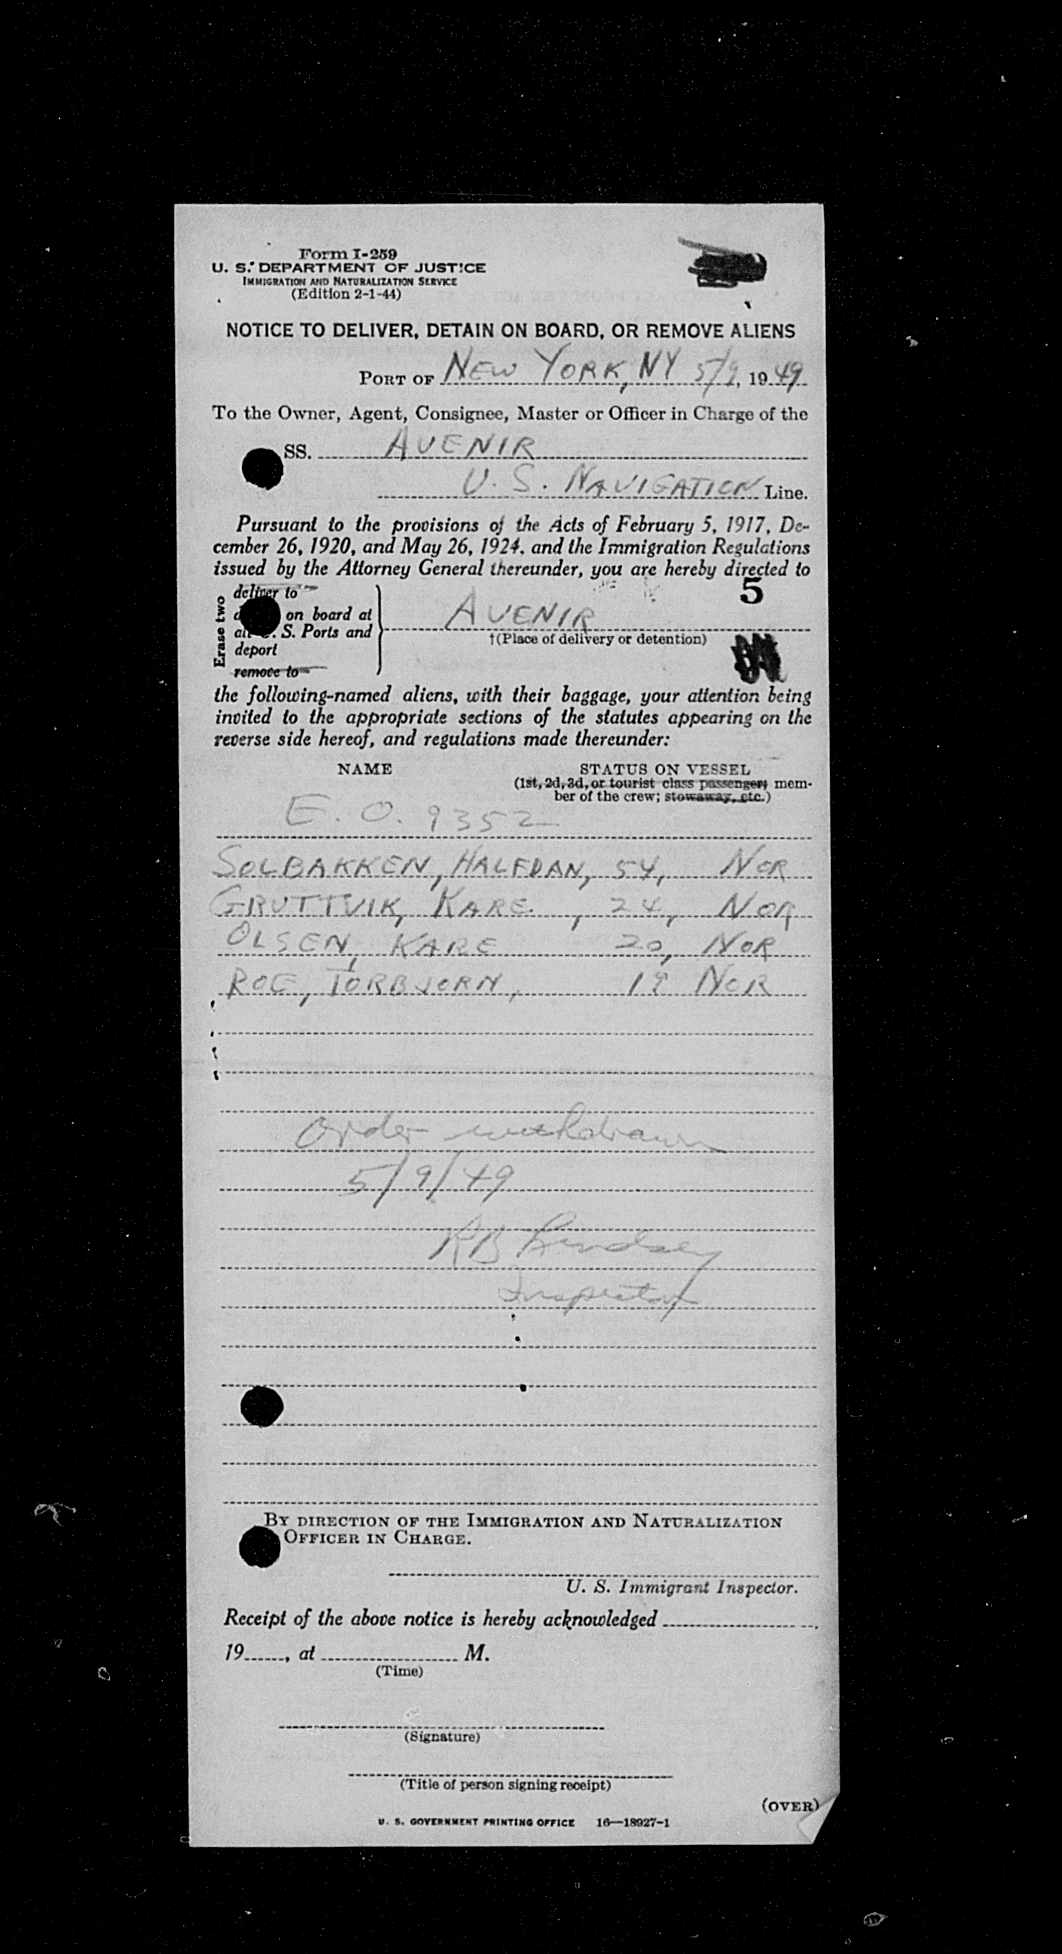 Form I-259
U. S. DEPARTMENT OF JUSTICE
IMMIGRATION AND NATURALIZATION SERVICE
(Edition 2-1-44)
NOTICE TO DELIVER, DETAIN ON BOARD, OR REMOVE ALIENS
PORT OF NEW YORK, NY 5/9, 1949
To the Owner, Agent, Consignee, Master or Officer in Charge of the
SS. AVENIR
U. S. NAVIGATION Line.
Pursuant to the provisions of the Acts of February 5, 1917, De-
cember 26, 1920, and May 26, 1924, and the Immigration Regulations
issued by the Attorney General thereunder, you are hereby directed to
5
Erase two
deliver to
on board at
all U. S. Ports and
deport
remove to
AVENIR
†(Place of delivery or detention)
the following-named aliens, with their baggage, your attention being
invited to the appropriate sections of the statutes appearing on the
reverse side hereof, and regulations made thereunder:
NAME STATUS ON VESSEL
(1st, 2d, 3d, or tourist class passenger; mem-
ber of the crew; stowaway, etc.)
E. O. 9352
SOLBAKKEN, HALFDAN, 54, NOR
GRUTTVIK, KARE, 24, NOR
OLSEN, KARE 20, NOR
ROE, TORBJORN, 19 NOR
Order withdrawn
5/9/49
RB Lindsey
Inspector
BY DIRECTION OF THE IMMIGRATION AND NATURALIZATION
OFFICER IN CHARGE.
U. S. Immigrant Inspector.
Receipt of the above notice is hereby acknowledged
19 , at M.
(Time)
(Signature)
(Title of person signing receipt)
(OVER)
U. S. GOVERNMENT PRINTING OFFICE 16—18927-1